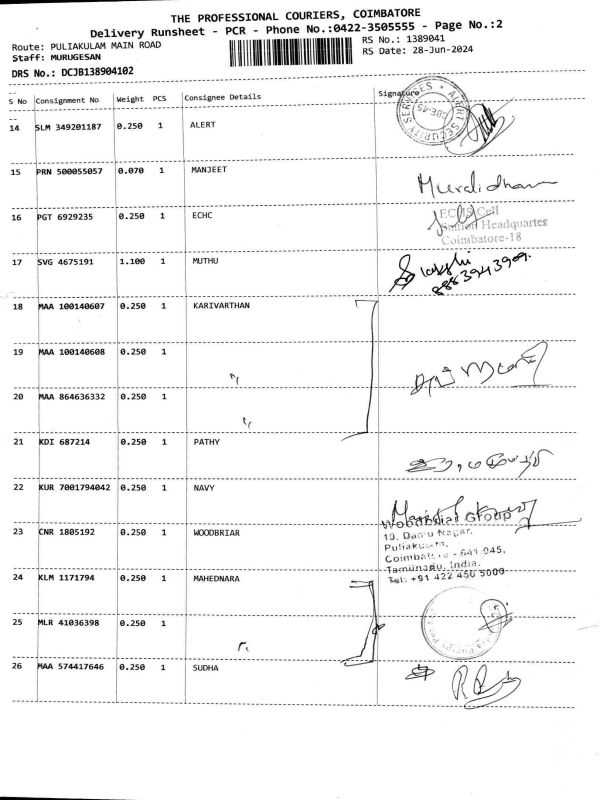 THE PROFESSIONAL COURIERS, COIMBATORE
Delivery Runsheet - PCR - Phone No.:0422-3505555 - Page No.:2
Route: PULIAKULAM MAIN ROAD
RS No.: 1389041
Staff: MURUGESAN
RS Date: 28-Jun-2024
DRS No.: DCJB138904102
S No Consignment No Weight PCS Consignee Details Signature
14 SLM 349201187 0.250 1 ALERT
ALERT SECURITY SERVICES
CBE-45
15 PRN 500055057 0.070 1 MANJEET
Muralidharan
16 PGT 6929235 0.250 1 ECHC
ECHS Cell
Station Headquarter
Coimbatore-18
17 SVG 4675191 1.100 1 MUTHU
8883943909.
18 MAA 100140607 0.250 1 KARIVARTHAN
19 MAA 100140608 0.250 1
20 MAA 864636332 0.250 1
21 KDI 687214 0.250 1 PATHY
22 KUR 7001794042 0.250 1 NAVY
23 CNR 1805192 0.250 1 WOODBRIAR
Woodbriar Group
10, Damu Nagar,
Puliakulam,
Coimbatore - 641 045.
Tamilnadu, India.
Tel: +91 422 450 5000
24 KLM 1171794 0.250 1 MAHEDNARA
25 MLR 41036398 0.250 1
26 MAA 574417646 0.250 1 SUDHA